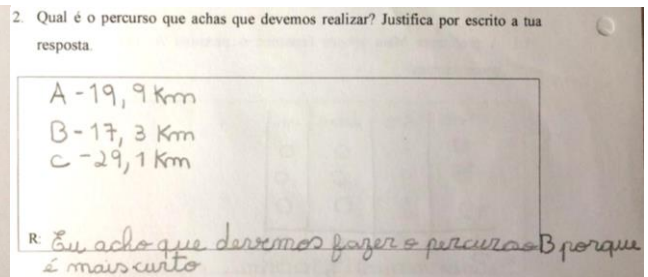 2. Qual é o percurso que achas que devemos realizar? Justifica por escrito a tua
resposta.
A - 19,9 Km
B - 17,3 Km
C - 29,1 Km
R: Eu acho que devemos fazer o percurso B porque
é mais curto